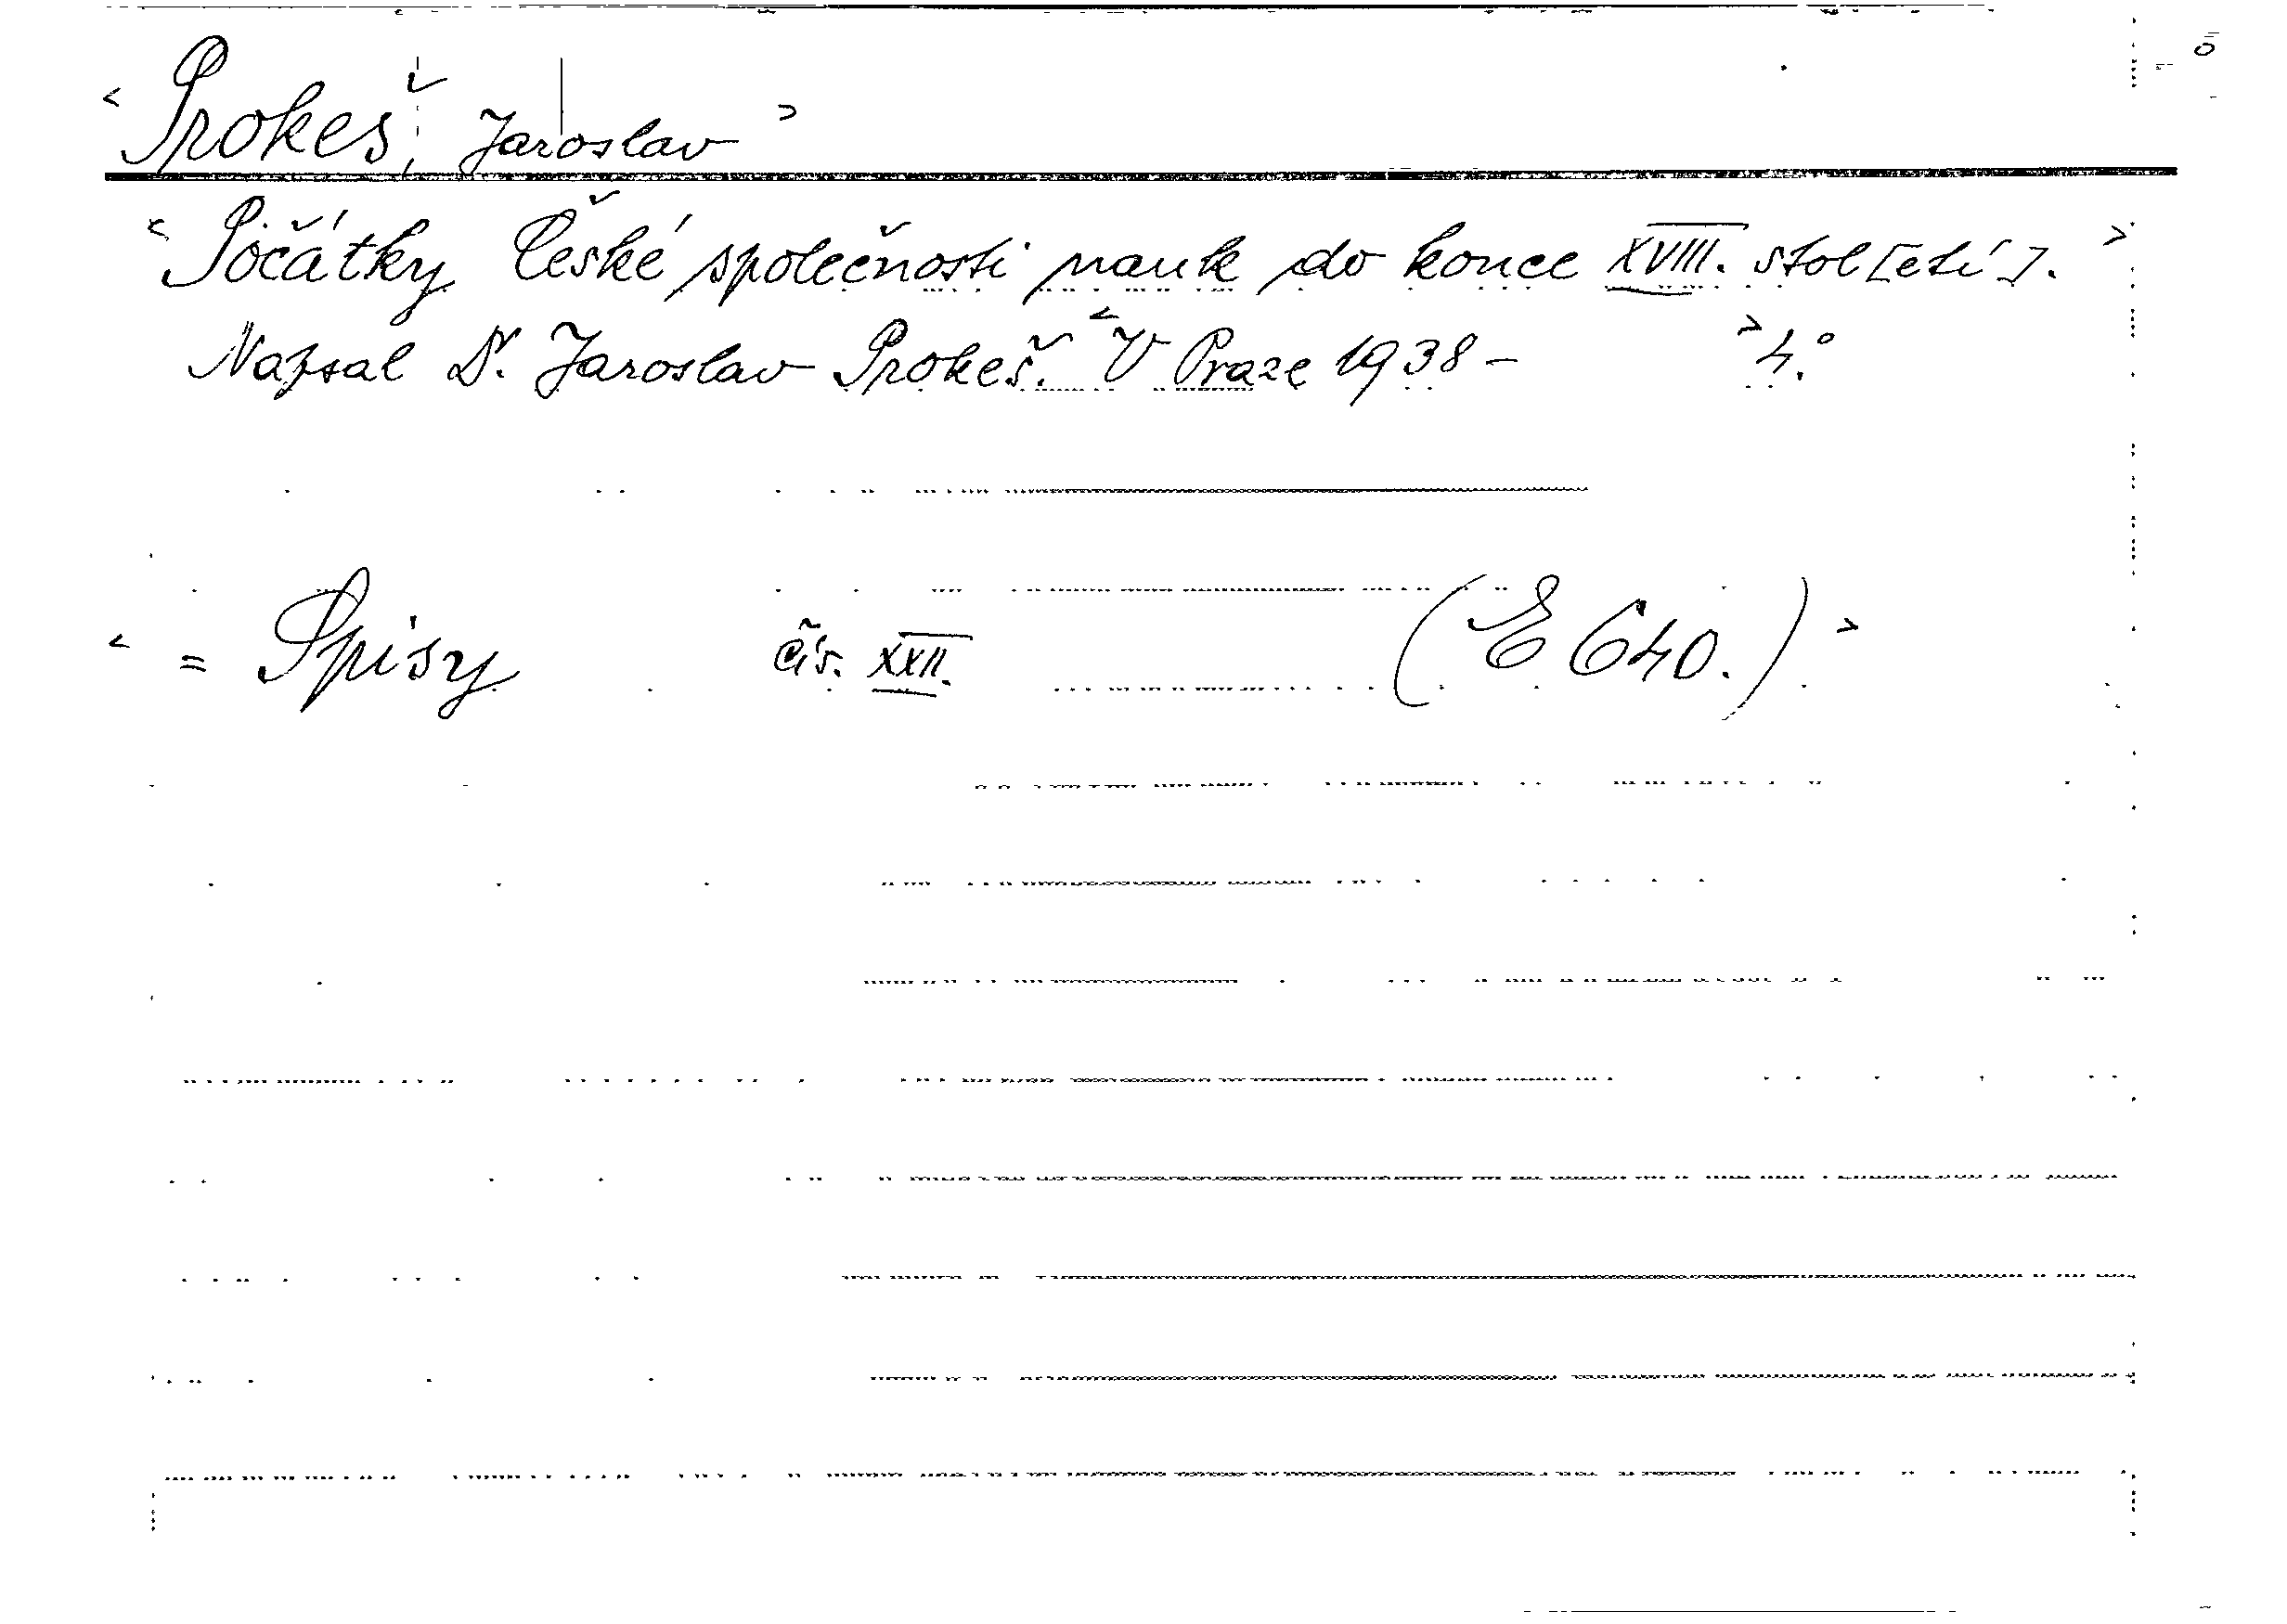 < Prokeš, Jaroslav >
< Počátky České společnosti nauk do konce XVIII. stol[etí]. >
Napsal Dr. Jaroslav Prokeš. < V Praze 1938 - > 4.°
< = Spisy čís. XXII. (E 640.) >